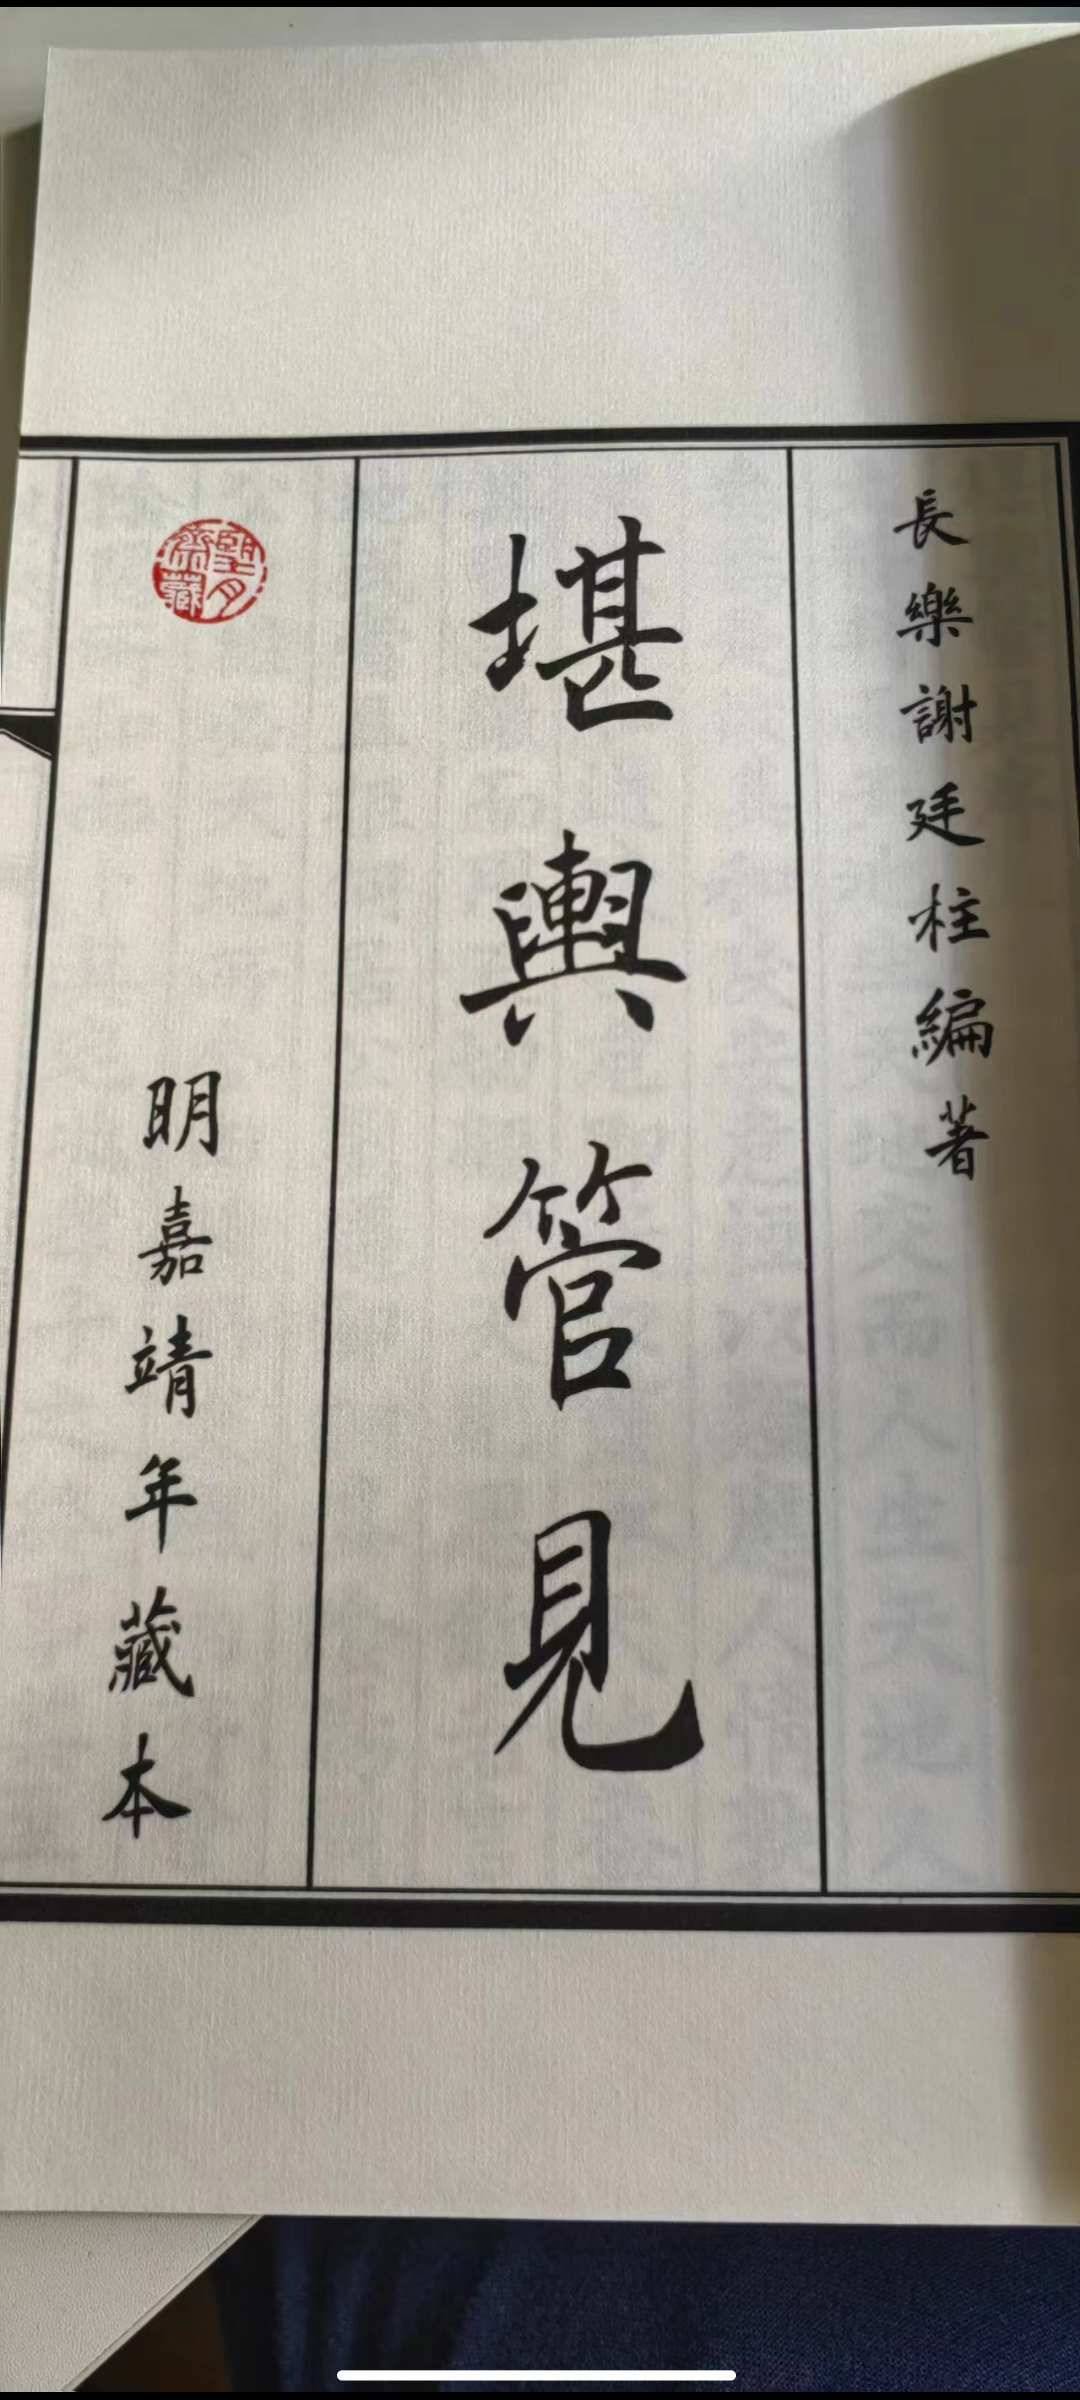 長樂謝廷柱編著
堪輿管見
明嘉靖年藏本